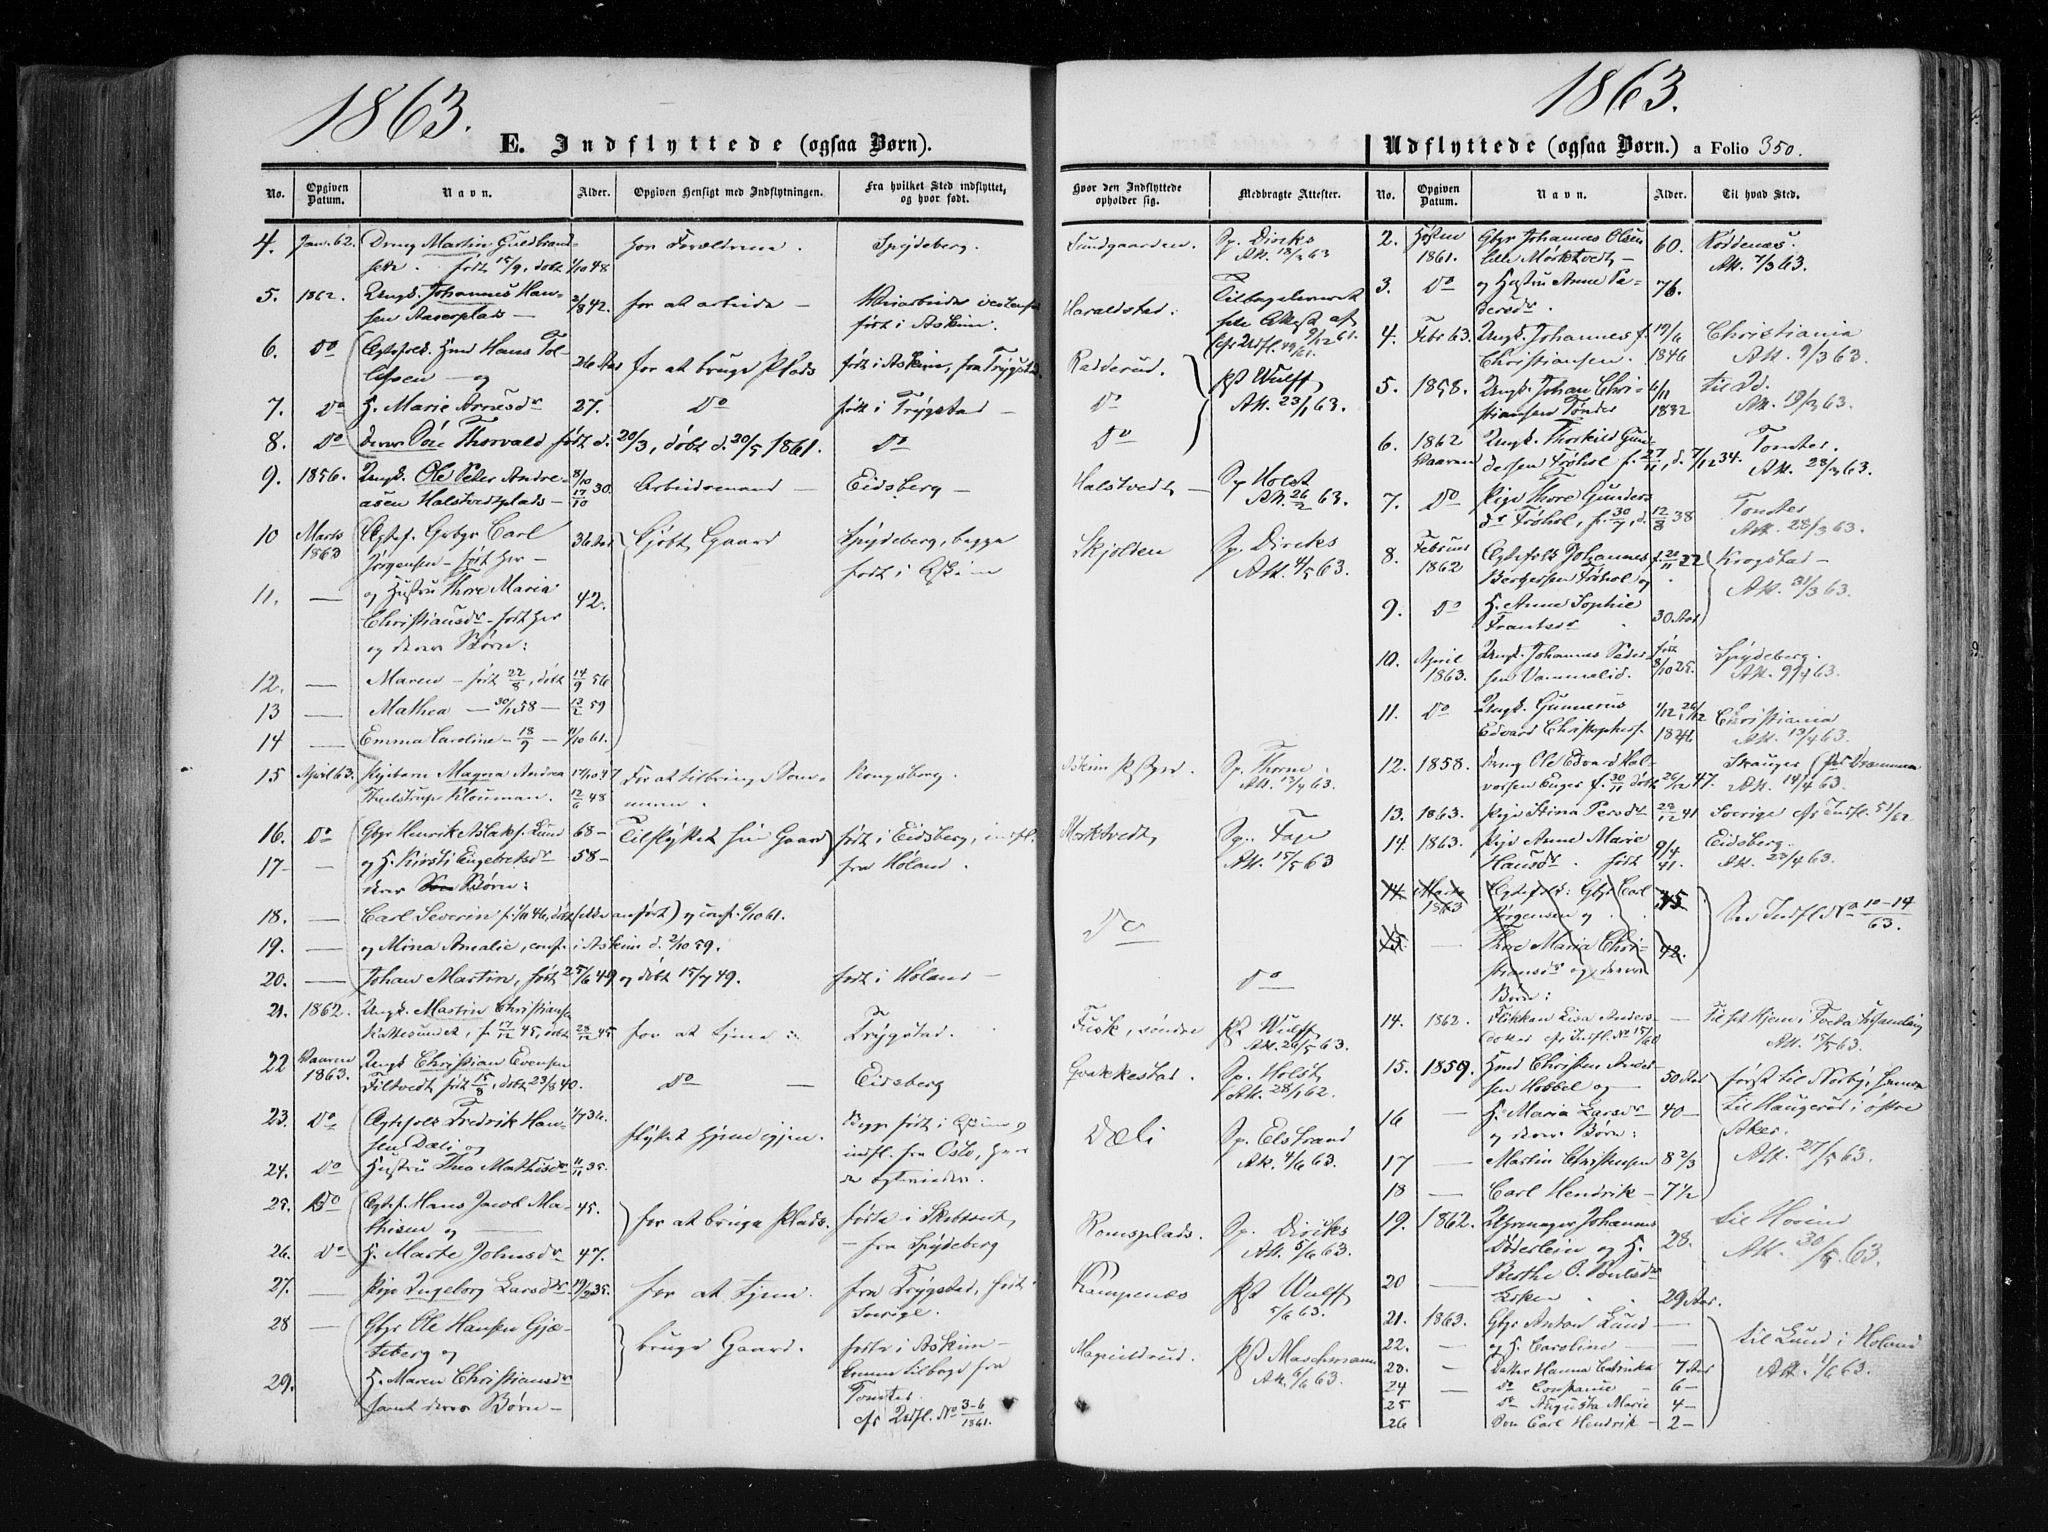 1863.
E. Indflyttede (ogsaa Børn).
No. Opgiven Datum. Navn. Alder. Opgiven Hensigt med Indflytningen. Fra hvilket Sted indflyttet, og hvor født.
4. Jan. 62. Dreng Martin Guldbrand- hos Forældrene. Spydeberg.
sen. født 15/9, døbt 1/10 48
5. 1862. Ungk. Johannes Han- 2/8 42. for at arbeide —
sen Aaserplads — født i Askim.
6. Do Ægtefolk. Hmd Hans Tol- 26 Aar for at bruge Plads født i Askim, fra Trygstad.
lefsen — og
7. Do H. Marie Arnesdr 27. Do født i Trygstad —
8. Do deres Søn Thorvald født d. 20/3, døbt d. 20/5 1861. Do
9. 1856. Ungk. Ole Peter Andre- 8/10 Arbeidsmand — Eidsberg —
asen Halstvedtplads — 17/10 30.
10 Marts 1863 Ægtef. Gbygr Carl 36 Aar Kjøbt Gaard Spydeberg, begge
Jørgensen — født her — født i Askim
11. — og Hustru Thore Maria 42.
Christiansdr — født her
og deres Børn:
12. — Maren — født 22/8, døbt 14/9 56
13 — Mathea — 30/11 58 — 13/2 59
14 — Emma Caroline — 18/9 — 11/10 61.
15 April 63. Pigebarn Magna Andrea 17/10 47 For at tilbringe Som- Kongsberg.
Thulstrup Klouman. 12/6 48 meren.
16. Do Gbgr Henrik Aslaks. Lund 68 — Tilflyttet sin Gaard født i Eidsberg, indfl.
17 — og H. Kirsti Engebretsdr 58 — fra Høland.
deres Børn:
18. — Carl Severin f. 1/10 46, døbt (ikke anført) og conf. 6/10 61.
19. — og Mina Amalie, conf. i Askim d. 2/10 59.
20. — Johan Martin, født 25/6 49 og døbt 15/7 49. født i Høland —
21. 1862. Ungk. Martin Christians.
Kattesundet, f. 17/12 45, døbt 28/12 45 for at tjene Trygstad.
22 Vaaren 1863. Ungk Christian Evensen
Filtvedt født 15/8, døbt 23/8 40. Do — Eidsberg
23. Do Ægtefolk Fredrik Han- 1/7 36. flyttet hjem igjen. Begge født i Askim og
sen Dæli og indfl. fra Oslo, hvor
24. Do Hustru Thea Mathisdr 11/11 35.
25. Do Ægtef. Hans Jacob Ma- 45. for at bruge Plads. fødte i Skibtvet,
thisen og — fra Spydeberg
26. Do H. Marte Johnsdr 47.
27. — Pige Ingeborg Larsdr 19/2 35. for at tjene. fra Trygstad, født i
Sverige.
28 — Gbgr Ole Hansen Gjæ- bruge Gaard. fødte i Askim —
teberg og komne tilbage fra
29. — H. Maren Christiansdr Tomter
samt deres Børn — cfr Udfl. No 3-6/1861.
1863.
Udflyttede (ogsaa Børn.) a Folio 350.
Hvor den Indflyttede opholder sig. Medbragte Attester. No. Opgiven Datum. Navn. Alder. Til hvad Sted.
Sundgaarden. Sp. Dircks
Att. 13/2 63
Haraldstad. Tilbageleveret
Radderud. pst Wulff
Do Att. 23/1 63.
Do
Halstvedt — Sp Holst
Att. 26/2 63.
Skjolden Sp. Dircks
Att. 4/5 63.
Askim Pstgrd. Sp. Thorne.
Att. 13/4 63.
Morktvedt Sp. Faye
Att. 15/5 63
Do Do
Fusk, søndre pst Wulff
Att. 26/5 63.
Grakkestad. Sp. Holst
Att. 28/1 62.
Dæli Sp. Elstrand
Att. 4/6 63.
Romsplads. Sp. Diriks
Att. 5/6 63.
Kampenæs pst Wulff
5/6 63.
Magnildrud. pst Maschmann
Att. 6/6 63.
2. Høsten 1861. Gbgr Johannes Olsen 60. Rødenæs.
lille Mørktvedt — Att. 7/3 63.
3. Do og Hustru Anne Pe- 76.
dersdr.
4. Febr 63. Ungk. Johannes f. 19/6 Christiania
Christiansen. 1846 Att. 9/3 63.
5. 1858. Ungk. Johan Chri- 6/11 til Id.
stiansen Tønder 1832 Att. 19/3 63.
6. 1862 Vaaren Ungk. Thorkild Gun- Tomter.
dersen Frøhol f. 27/11, d. 7/12 34. Att. 28/3 63.
7. Do Pige Thore Gunders- Tomter
dr Frøhol, f. 30/7, d. 12/8 38 Att. 28/3 63.
8. Februar 1862 Ægtefolk Johannes f. 20/11 22 Krogstad —
Borgersen Frøhol og Att. 31/3 63.
9. Do H. Anne Sophie
Frantsdr 30 Aar
10. April 1863. Ungk. Johannes Peder- født Spydeberg.
sen Vammelid. 8/10 25. Att. 9/4 63.
11. Do Ungk. Gunnerus 1/12, 26/12 Christiania
Edvard Christophers. 1846 Att. 13/4 63.
12. 1858. Dreng Ole Edvard Hal-
vorsen Enger f. 30/11 døbt 26/12 47. Att. 14/4 63.
13. 1863. Pige Stina Persdr 28/12 41 Sverige cfr Indfl. 51/62
14. 1863. Pige Anne Marie 9/4 Eidsberg.
Hansdr. født 41. Att. 23/4 63.
14 Marts 1863 Ægtefolk: Gbgr Carl 35 Se Indfl No 10-14/63.
Jørgensen og
15. — Thore Maria Chri- 42.
stiansdr og deres
Børn:
14. 1862. Flikkan Lisa Anders- — til sit Hjem i Foxta Forsamling
dotter cfr Indfl. No 15/60 Att. 19/5 63.
15. 1859. Hmd Christen Ander- 50 Aar først til Norby, senere
sen Hobbel og — til Haugerud i østre
16 — H. Maria Larsdr 40 — Aker.
og deres Børn: Att. 27/5 63.
17 — Martin Christensen 8 2/3
18 — Carl Hendrik — 7 1/2
19. 1862. Uhrmager Johannes 28. til Hovind
Døderlein og H. Att. 30/5 63.
20 — Berthe O. Bulsdr
29 Aar.
21. 1863. Gbgr Anton Lund — til Lund i Høland
22. — og H. Caroline — Att. 1/6 63.
23. — Datter Hanna Cathinka 7 Aar
24 — Do Constance — 6 —
25 Do Augusta Marie 4 —
26 Søn Carl Hendrik — 2 —